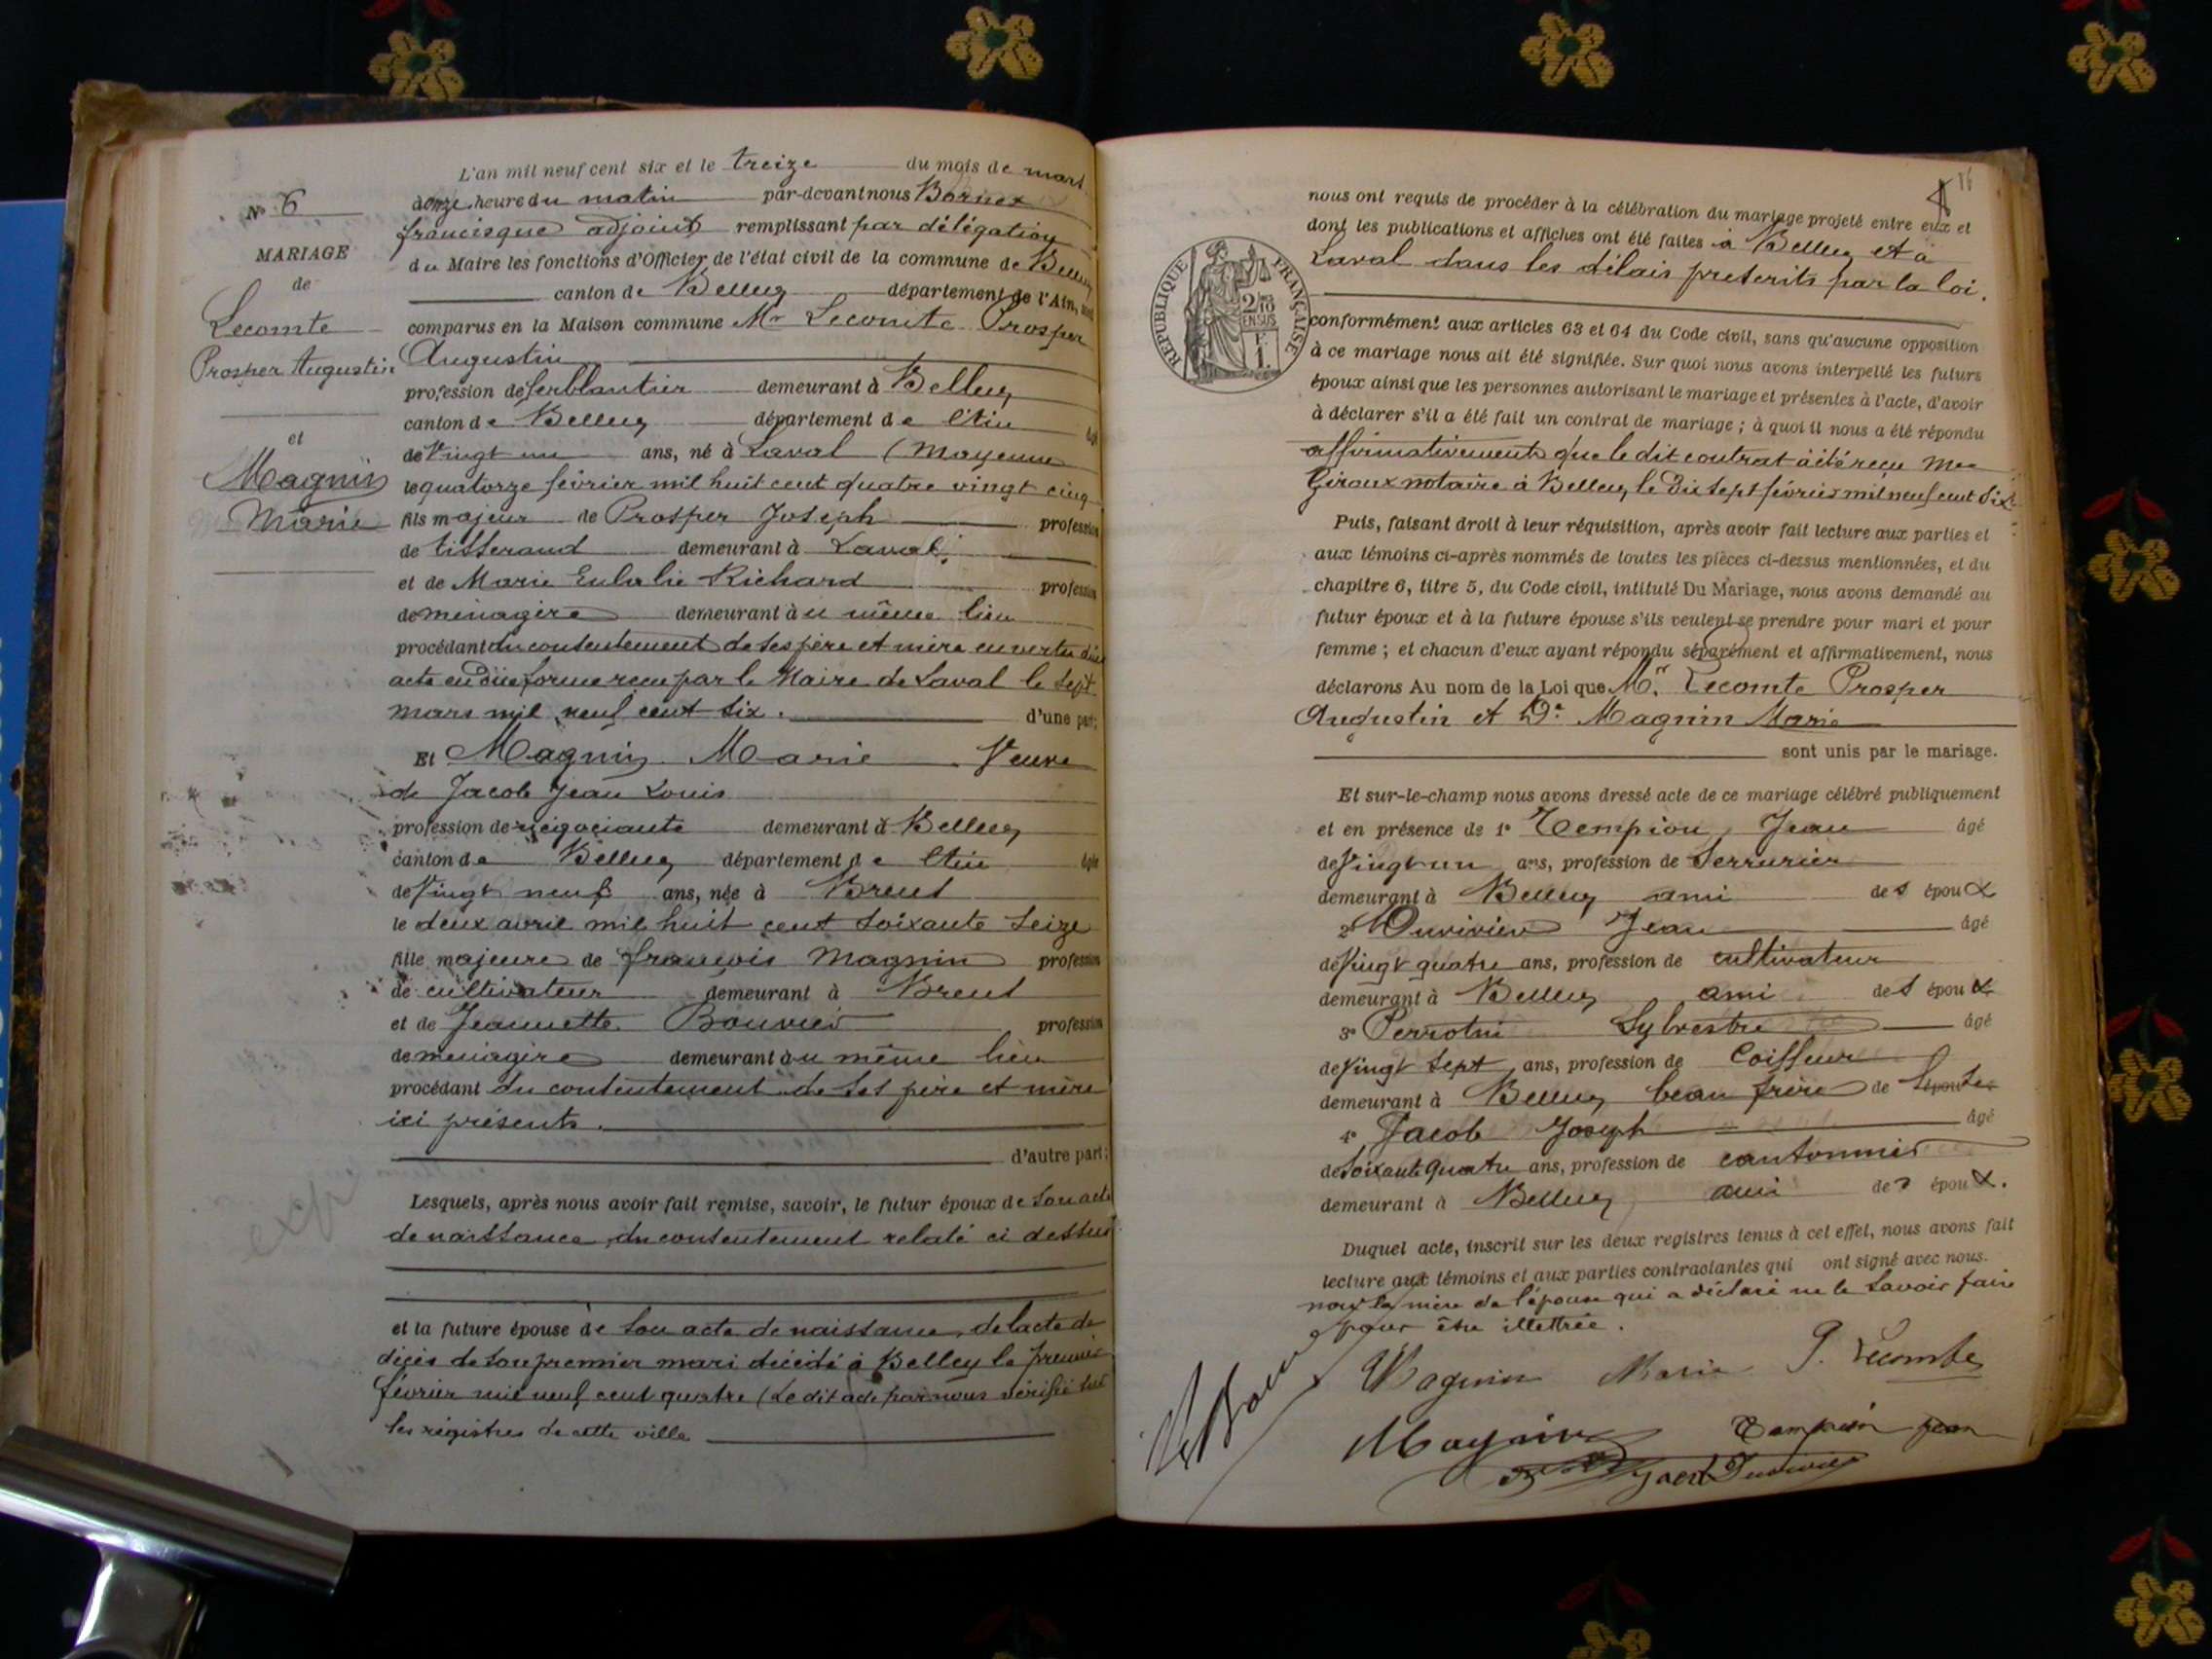 L'an mil neuf cent six et le treize du mois de mars
onze heure du matin par-devant nous Bornet
francisque adjoint remplissant par délégation
du Maire les fonctions d'Officier de l'état civil de la commune de Belley
canton de Belley département de l'Ain, sont
comparus en la Maison commune Mr Lecomte Prosper
Augustin
profession de ferblantier demeurant à Belley
canton de Belley département de l'Ain âgé
de Vingt un ans, né à Laval (Mayenne
le quatorze février mil huit cent quatre vingt cinq
fils majeur de Prosper Joseph profession
de tisserand demeurant à Laval
et de Marie Eulalie Richard profession
de ménagère demeurant à u même lieu
procédant du consentement de ses père et mère en vertu d'un
acte en due forme reçu par le Maire de Laval le sept
mars mil neuf cent six. d'une part;
Et Magnin Marie Veuve
de Jacob Jean Louis
profession de négociante demeurant à Belley
canton de Belley département de l'Ain âgée
de Vingt neuf ans, née à Brens
le deux avril mil huit cent soixante seize
fille majeure de françois Magnin profession
de cultivateur demeurant à Brens
et de Jeannette Bouvier profession
de ménagère demeurant à u même lieu
procédant du consentement de ses père et mère
ici présents.
d'autre part;
Lesquels, après nous avoir fait remise, savoir, le futur époux de son acte
de naissance, du consentement relaté ci dessus
et la future épouse de son acte de naissance, de l'acte de
décès de son premier mari décédé à Belley le premier
février mil neuf cent quatre (Le dit acte par nous vérifié sur
les registres de cette ville
No 6
MARIAGE
de
Lecomte
Prosper Augustin
et
Magnin
Marie
16
nous ont requis de procéder à la célébration du mariage projeté entre eux et
dont les publications et affiches ont été faites à Belley et à
Laval dans les délais prescrits par la loi.
RÉPUBLIQUE FRANÇAISE
2/10 EN SUS
1 F.
conformément aux articles 63 et 64 du Code civil, sans qu'aucune opposition
à ce mariage nous ait été signifiée. Sur quoi nous avons interpellé les futurs
époux ainsi que les personnes autorisant le mariage et présentes à l'acte, d'avoir
à déclarer s'il a été fait un contrat de mariage ; à quoi il nous a été répondu
affirmativement que le dit contrat a été reçu Me
Giroux notaire à Belley, le Dix sept février mil neuf cent six
Puis, faisant droit à leur réquisition, après avoir fait lecture aux parties et
aux témoins ci-après nommés de toutes les pièces ci-dessus mentionnées, et du
chapitre 6, titre 5, du Code civil, intitulé Du Mariage, nous avons demandé au
futur époux et à la future épouse s'ils veulent se prendre pour mari et pour
femme ; et chacun d'eux ayant répondu séparément et affirmativement, nous
déclarons Au nom de la Loi que Mr. Lecomte Prosper
Augustin et De. Magnin Marie
sont unis par le mariage.
Et sur-le-champ nous avons dressé acte de ce mariage célébré publiquement
et en présence de 1° Tempion, Jean âgé
de Vingt un ans, profession de Serrurier
demeurant à Belley ami de s épou x
2° Duvivier Jean âgé
de Vingt quatre ans, profession de cultivateur
demeurant à Belley ami de s épou x
3° Perrotin Sylvestre âgé
de Vingt sept ans, profession de Coiffeur
demeurant à Belley beau frère de l'épouse
4° Jacob Joseph âgé
de soixante quatre ans, profession de cantonnier
demeurant à Belley ami de s épou x.
Duquel acte, inscrit sur les deux registres tenus à cet effet, nous avons fait
lecture aux témoins et aux parties contractantes qui ont signé avec nous.
non la mère de l'épouse qui a déclaré ne le savoir faire
pour être illettrée.
Magnin Marie P. Lecomte
Magnin Tempion jean
Jacob Duvivier